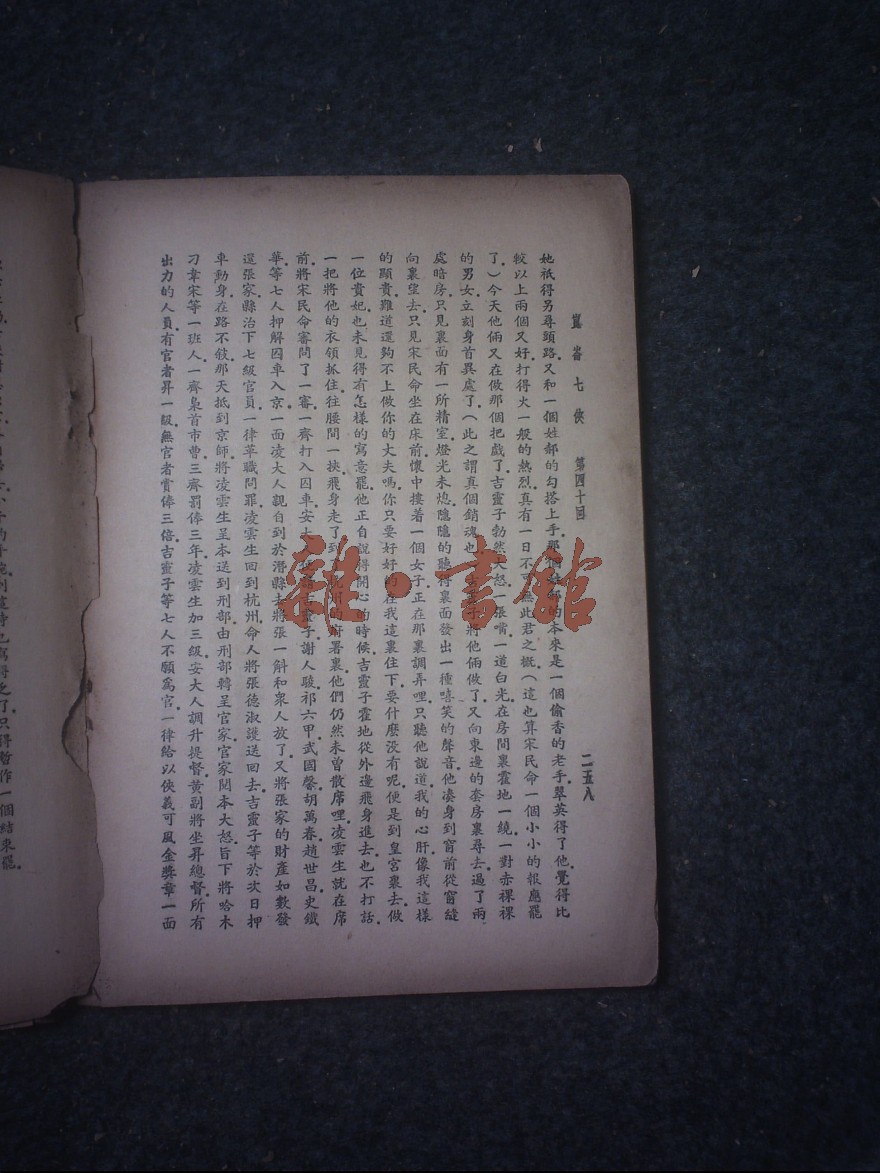 崑崙七俠 第四十回 二五八
她祇得另尋頭路又和一個姓郝的勾搭上手那個姓郝的本來是一個偷香的老手翠英得了他覺得比
較以上兩個又好打得火一般的熱烈真有一日不可無此君之概（這也算宋民命一個小小的報應罷
了）今天他倆又在做那個把戲了吉靈子勃然大怒一張嘴一道白光在房間裏霍地一繞一對赤裸裸
的男女立刻身首異處了（此之謂真個銷魂也 將他倆做了又向東邊的套房裏尋去過了兩
處暗房只見裏面有一所精室燈光未熄隱隱的聽得裏面發出一種嘻笑的聲音他湊身到窗前從窗縫
向裏望去只見宋民命坐在床前懷中摟着一個女子正在那裏調弄哩只聽他說道我的心肝像我這樣
的顯貴難道還夠不上做你的丈夫嗎你只要好好的在我這裏住下要什麼沒有呢便是到皇宮裏去做
一位貴妃也未見得有怎樣的寫意罷他正自說得開心的時候吉靈子霍地從外邊飛身進去也不打話
一把將他的衣領抓住往腰間一挾飛身走了到 州的府署裏他們仍然未曾散席哩凌雲生就在席
前將宋民命審問了一審一齊打入囚車安大 吉靈子謝人駿祁六甲武國馨胡萬春趙世昌史鐵
華等七人押解囚車入京一面凌大人親自到於潛縣去將張一斛和衆人放了又將張家的財產如數發
還張家縣治下七級官員一律革職問罪凌雲生回到杭州命人將張德淑護送回去吉靈子等於次日押
車動身在路不敍那天抵到京師將凌雲生呈本送到刑部由刑部轉呈官家官家閱本大怒旨下將哈木
刁韋宋等一班人一齊梟首市曹三齊罰俸三年凌雲生加三級安大人調升提督黃副將坐昇總督所有
出力的人員有官者昇一級無官者賞俸三倍吉靈子等七人不願爲官一律給以俠義可風金獎章一面
作一個結束罷
雜·書館